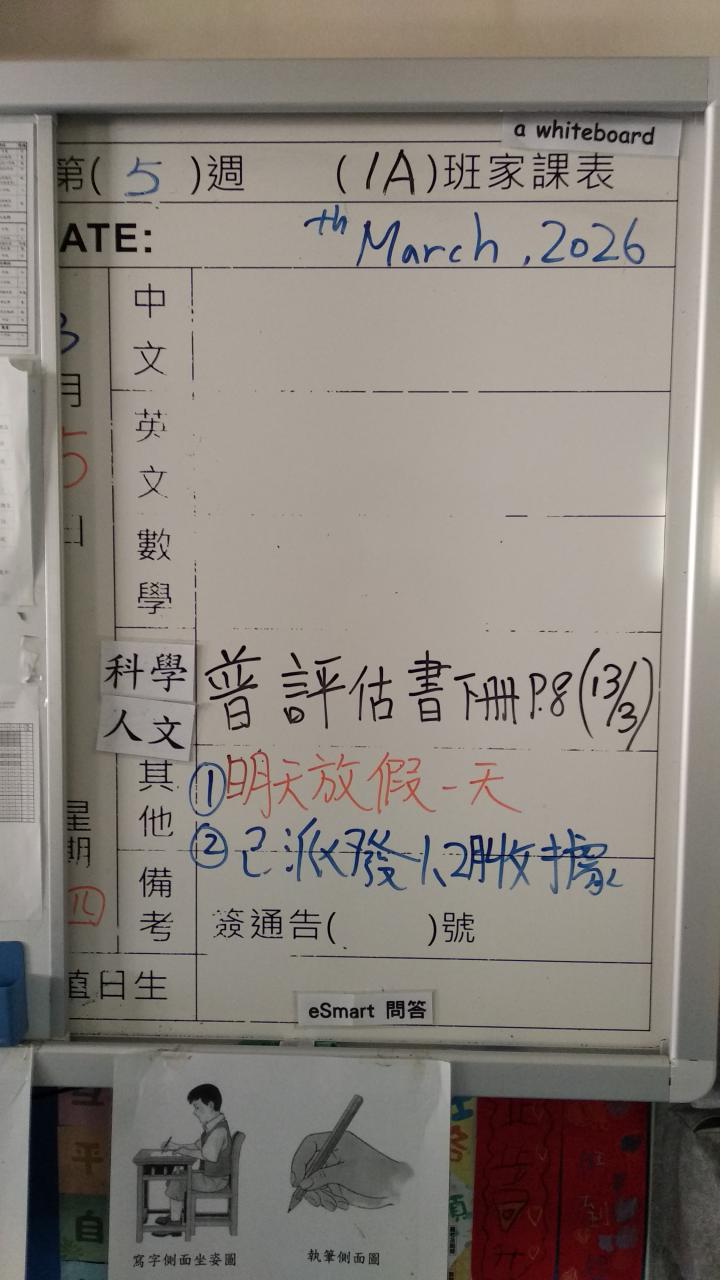 a whiteboard
第(5)週 (1A)班家課表
ATE: th March, 2026
3
月
5
日
星
期
四
中
文
英
文
數
學
科學
人文
普評估書下冊P.8(13/3)
其
他
①明天放假一天
②已派發1、2月收據
備
考
簽通告( )號
值日生
eSmart 問答
平
自
寫字側面坐姿圖
執筆側面圖